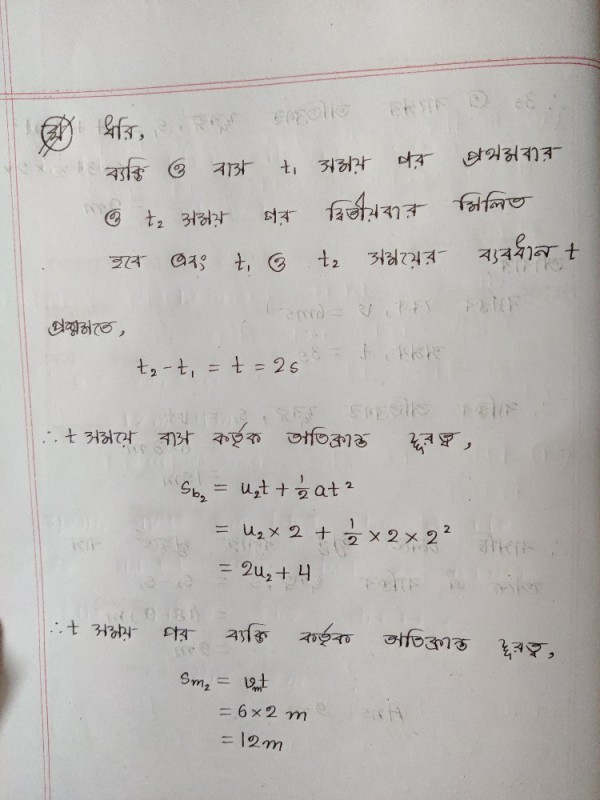 ধরি,
ব্যক্তি ও বাস t₁ সময় পর প্রথমবার
ও t₂ সময় পর দ্বিতীয়বার মিলিত
হবে এবং t₁ ও t₂ সময়ের ব্যবধান t
প্রশ্নমতে,
t₂ - t₁ = t = 2s
∴ t সময়ে বাস কর্তৃক অতিক্রান্ত দূরত্ব,
S_b₂ = u₂t + ½ at²
= u₂ × 2 + ½ × 2 × 2²
= 2u₂ + 4
∴ t সময় পর ব্যক্তি কর্তৃক অতিক্রান্ত দূরত্ব,
S_m₂ = v_m t
= 6 × 2 m
= 12m